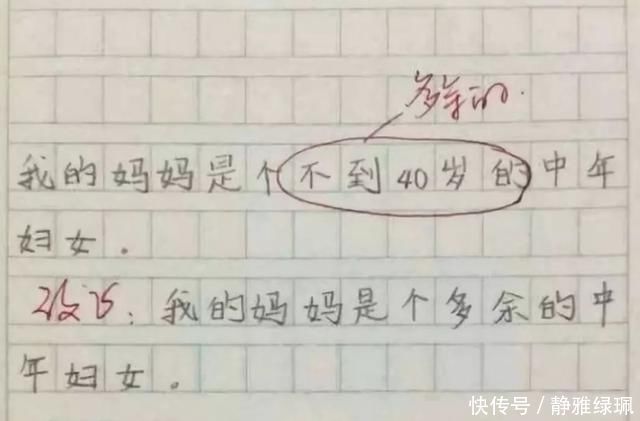 多余的.
我的妈妈是个不到40岁的中年
妇女.
改巧:我的妈妈是个多余的中
年妇女。
快传号/静雅绿珮